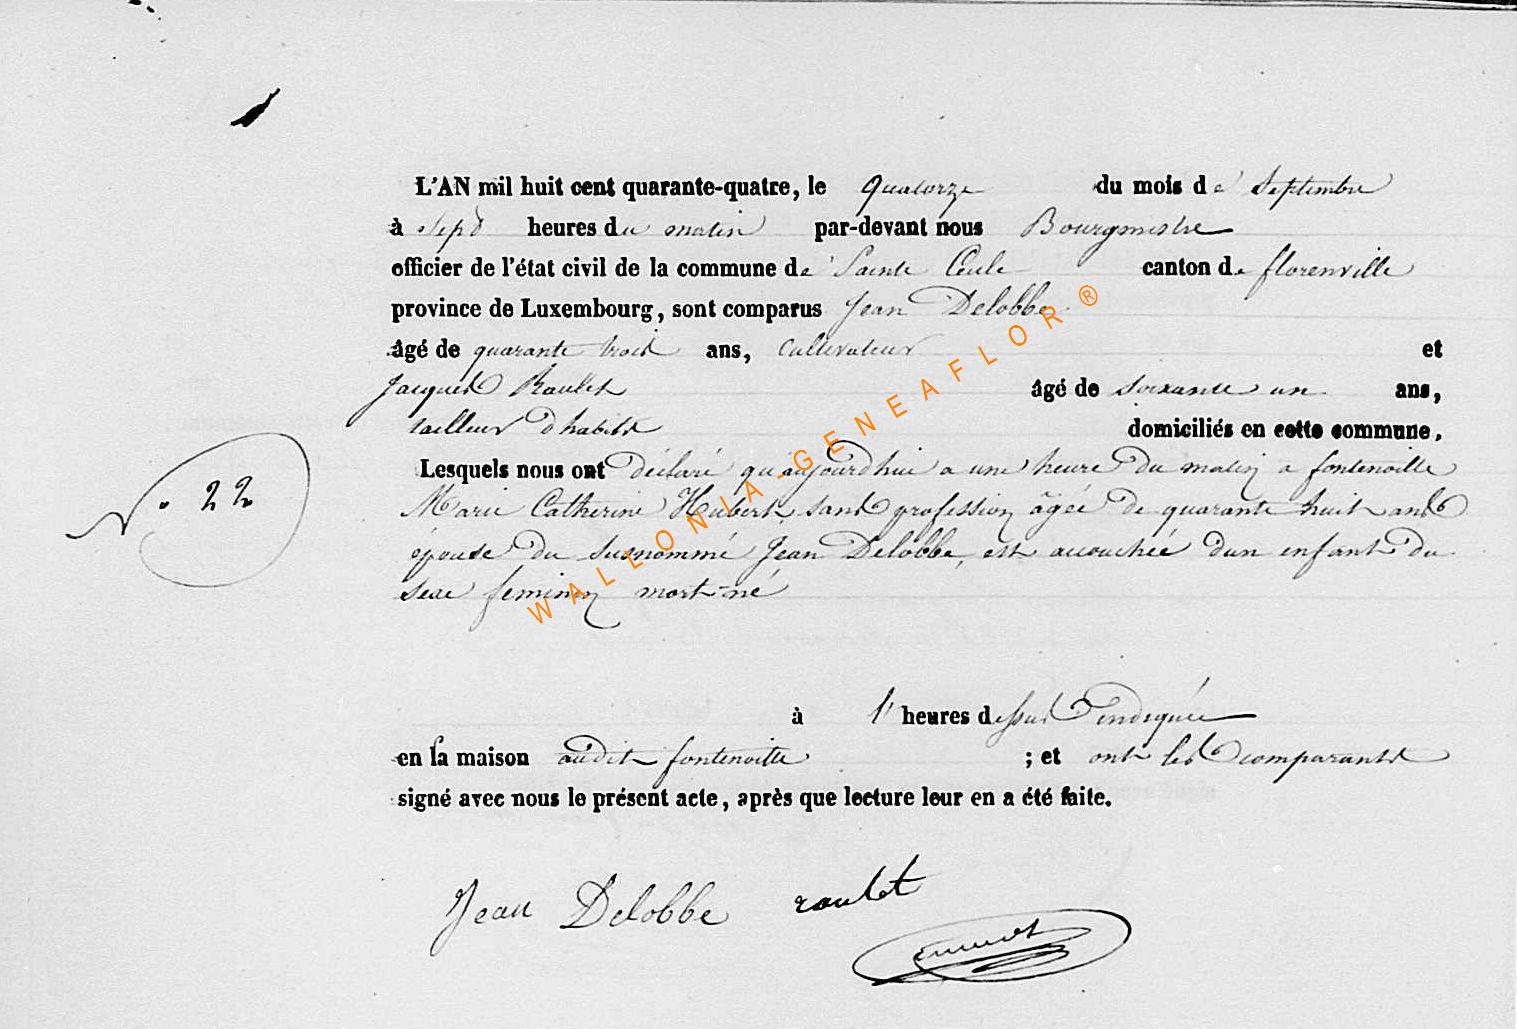 L'AN mil huit cent quarante-quatre, le quatorze du mois de Septembre
à Sept heures du matin par-devant nous Bourgmestre
officier de l'état civil de la commune de Sainte Cecile canton de florenville
province de Luxembourg, sont comparus Jean Delobbe
âgé de quarante trois ans, cultivateur et
Jacques Raulet âgé de soixante un ans,
tailleur d'habits domiciliés en cette commune,
Lesquels nous ont déclaré qu'aujourd'hui a une heure du matin a fontenoille
Marie Catherine Hubert, sans profession âgée de quarante huit ans
épouse du susnommé Jean Delobbe, est accouchée d'un enfant du
N° 22
sexe feminin mort-né
à l'heures dessus indiquée
en la maison audit fontenoille ; et ont les comparants
signé avec nous le présent acte, après que lecture leur en a été faite.
Jean Delobbe raulet
WALLONIA-GENEAFLOR®